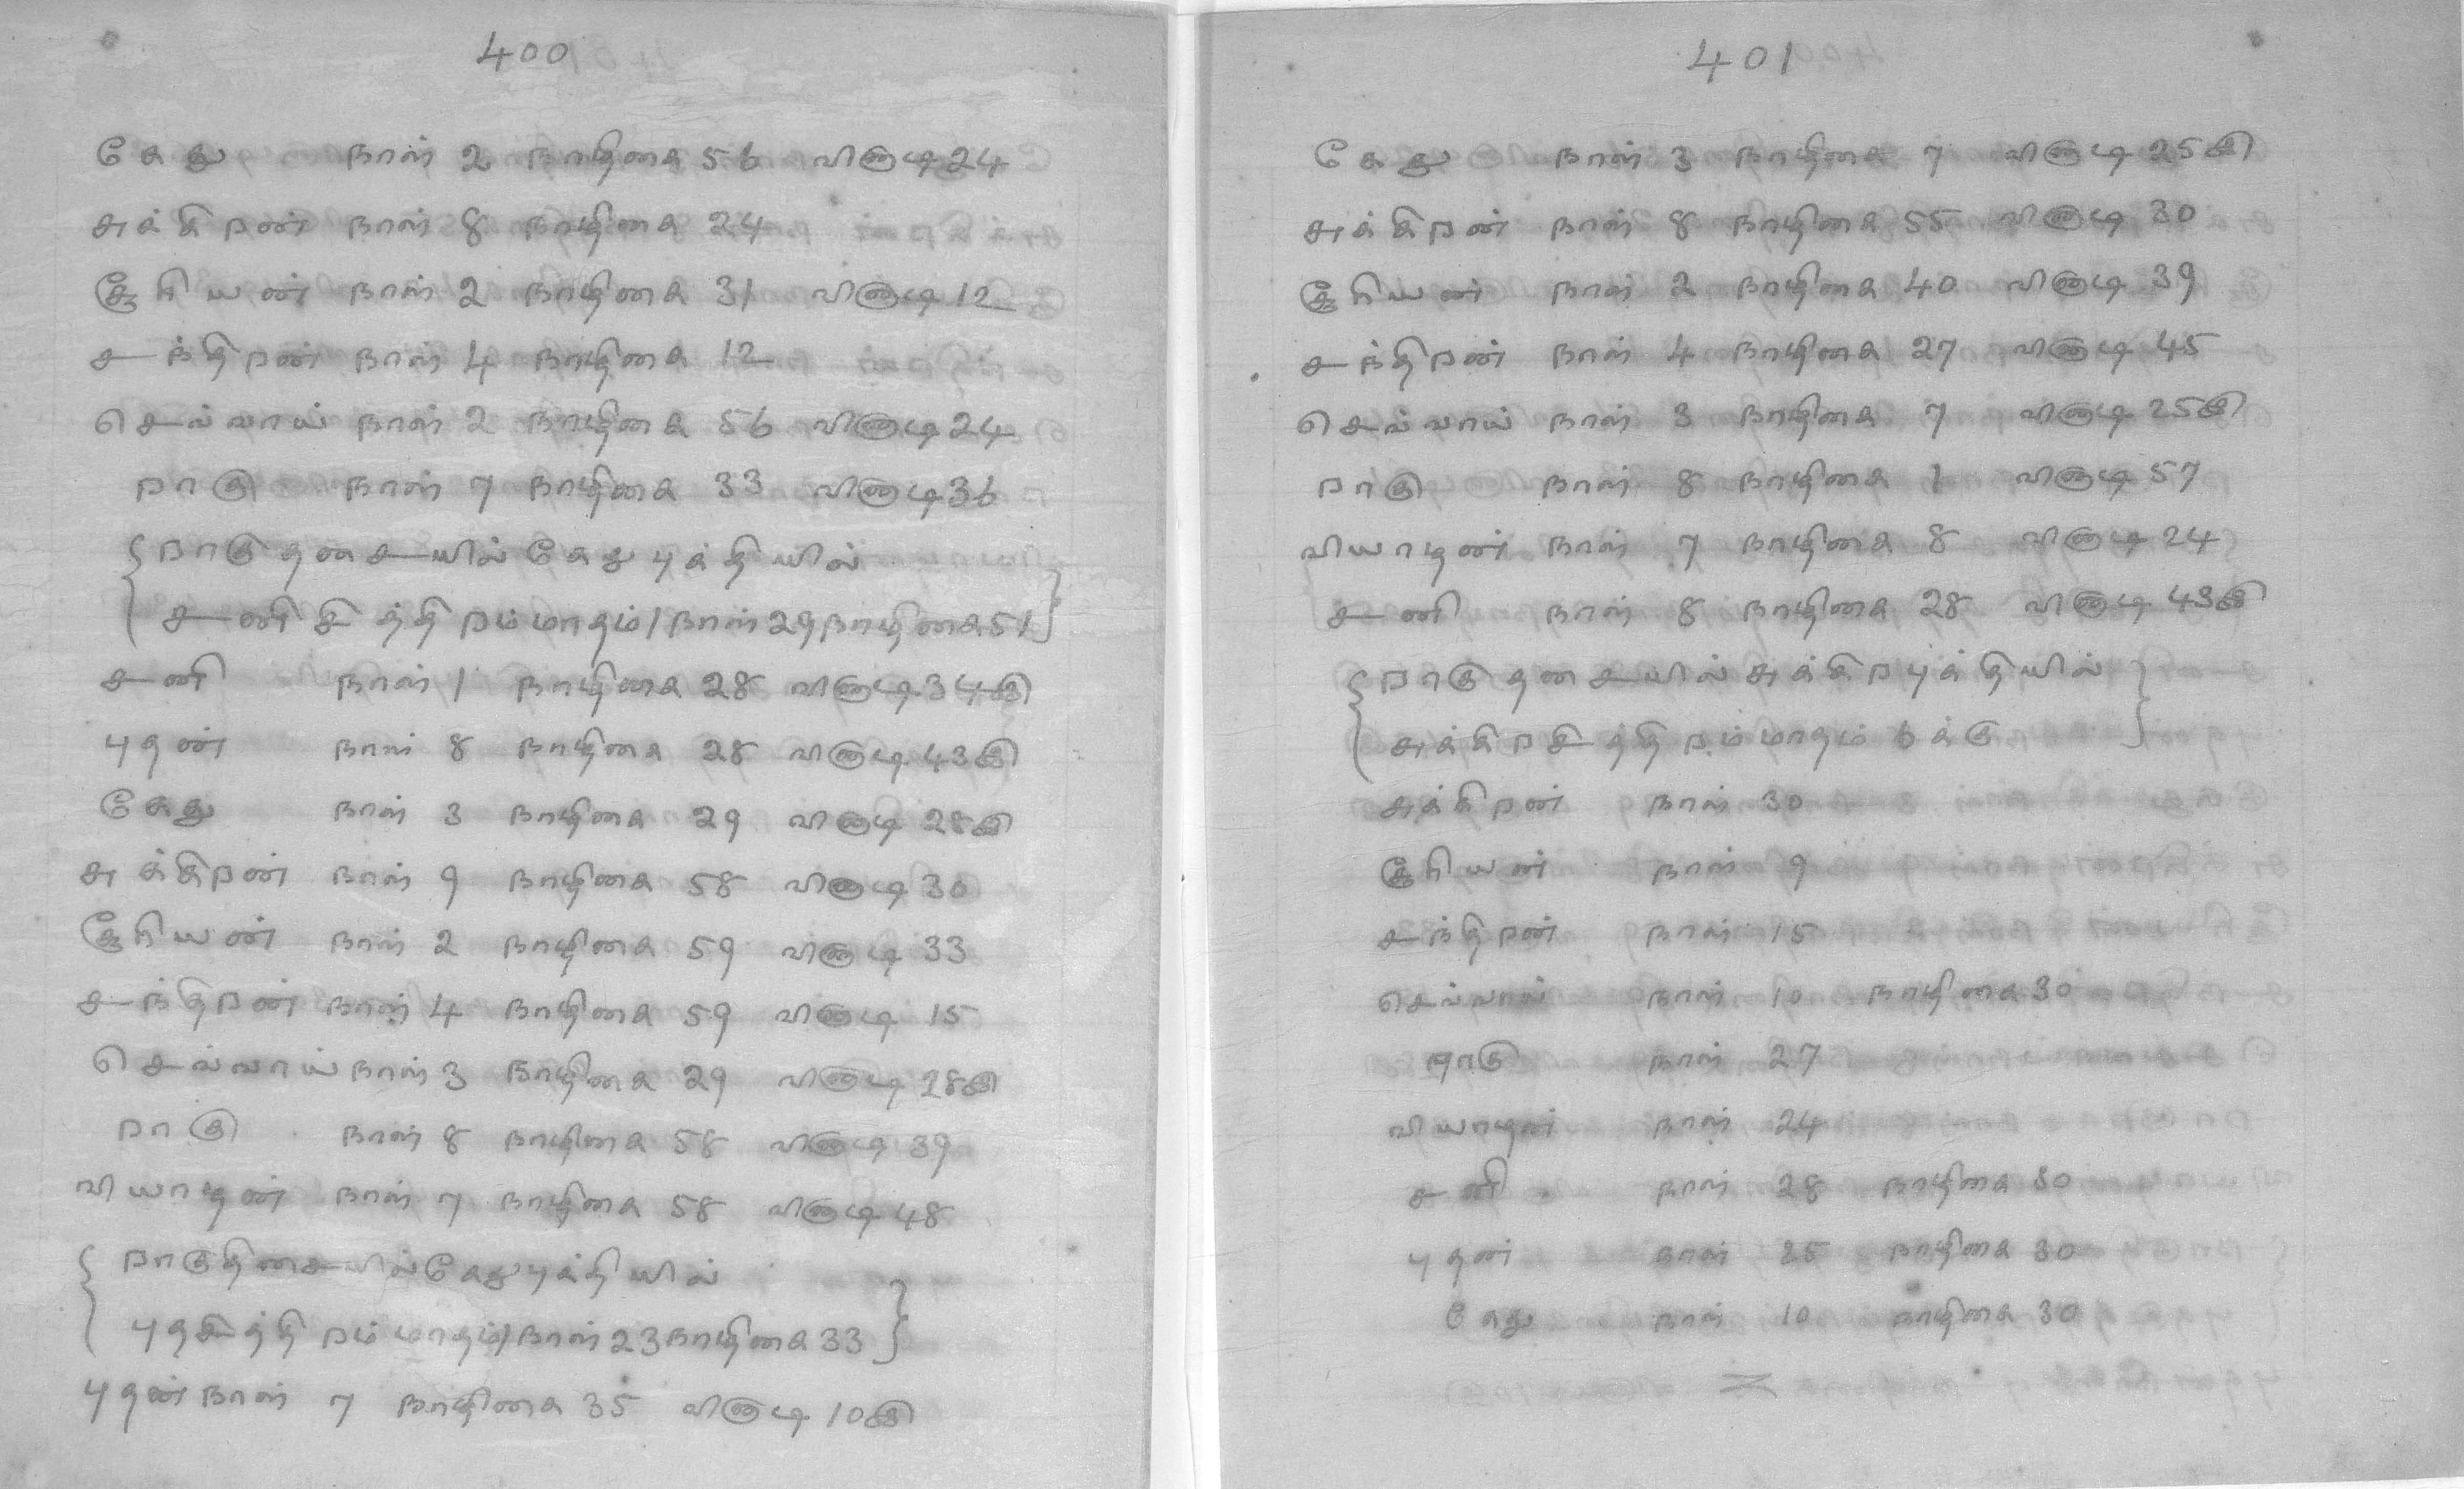 400
கேது நாள் 2 நாழிகை 56 விநாடி 24
சுக்கிறன் நாள் 8 நாழிகை 24
சூரியன் நாள் 2 நாழிகை 31 விநாடி 12
சந்திறன் நாள் 4 நாழிகை 12
செவ்வாய் நாள் 2 நாழிகை 56 விநாடி 24
றாகு நாள் 7 நாழிகை 33 விநாடி 36
றாகு தசையில் கேது புக்தியில்
சனி சித்திறம் மாதம் 1 நாள் 29 நாழிகை 51
சனி நாள் 1 நாழிகை 28 விநாடி 34
புதன் நாள் 8 நாழிகை 28 விநாடி 43
கேது நாள் 3 நாழிகை 29 விநாடி 28
சுக்கிறன் நாள் 9 நாழிகை 58 விநாடி 30
சூரியன் நாள் 2 நாழிகை 59 விநாடி 33
சந்திறன் நாள் 4 நாழிகை 59 விநாடி 15
செவ்வாய் நாள் 3 நாழிகை 29 விநாடி 28
றாகு நாள் 8 நாழிகை 58 விநாடி 39
வியாழன் நாள் 7 நாழிகை 58 விநாடி 48
றாகு திசையில் கேது புக்தியில்
புத சித்திறம் மாதம் 1 நாள் 23 நாழிகை 33
புதன் நாள் 7 நாழிகை 35 விநாடி 10
401
கேது நாள் 3 நாழிகை 7 விநாடி 25
சுக்கிறன் நாள் 8 நாழிகை 55 விநாடி 30
சூரியன் நாள் 2 நாழிகை 40 விநாடி 39
சந்திறன் நாள் 4 நாழிகை 27 விநாடி 45
செவ்வாய் நாள் 3 நாழிகை 7 விநாடி 25
றாகு நாள் 8 நாழிகை 1 விநாடி 57
வியாழன் நாள் 7 நாழிகை 8 விநாடி 24
சனி நாள் 8 நாழிகை 28 விநாடி 43
றாகு தசையில் சுக்கிற புக்தியில்
சுக்கிற சித்திறம் மாதம் 6 க்கு
சுக்கிறன் நாள் 30
சூரியன் நாள் 9
சந்திறன் நாள் 15
செவ்வாய் நாள் 10 நாழிகை 30
றாகு நாள் 27
வியாழன் நாள் 24
சனி நாள் 28 நாழிகை 30
புதன் நாள் 25 நாழிகை 30
கேது நாள் 10 நாழிகை 30